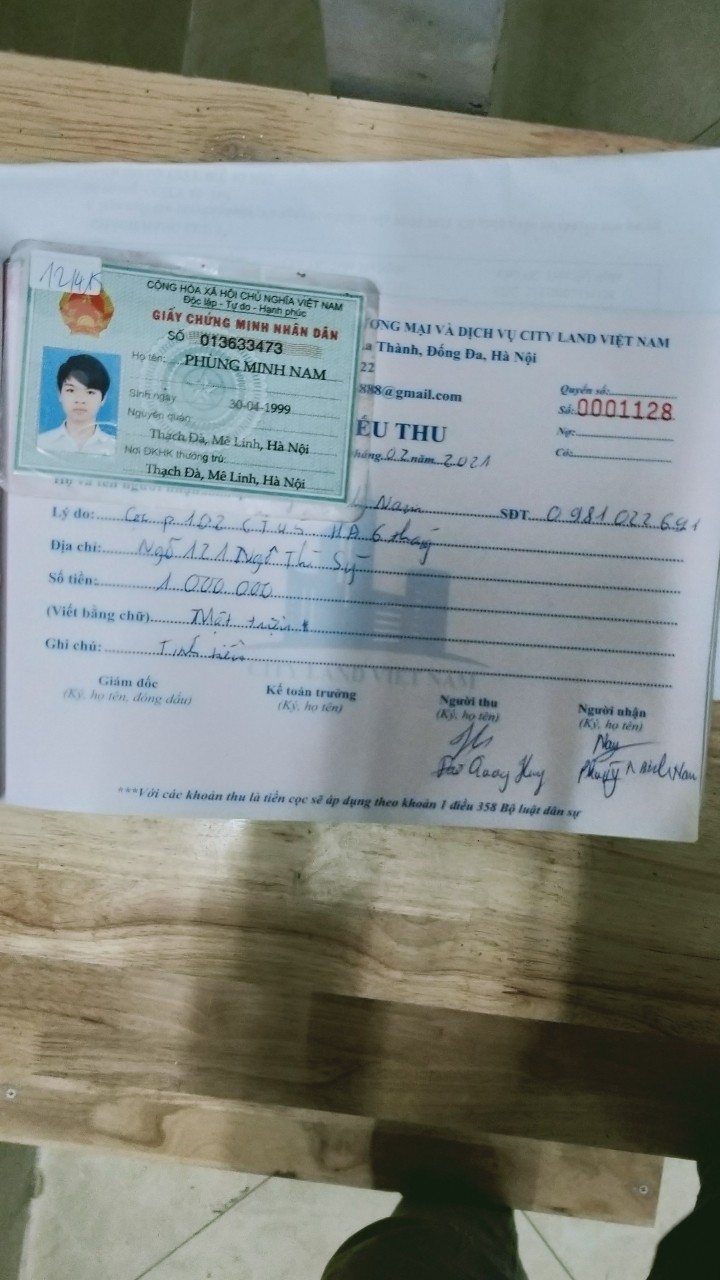 12/4/15
CỘNG HÒA XÃ HỘI CHỦ NGHĨA VIỆT NAM
Độc lập - Tự do - Hạnh phúc
GIẤY CHỨNG MINH NHÂN DÂN
SỐ 013633473
Họ tên: PHÙNG MINH NAM
Sinh ngày 30-04-1999
Nguyên quán
Thạch Đà, Mê Linh, Hà Nội
Nơi ĐKHK thường trú:
Thạch Đà, Mê Linh, Hà Nội
ƯƠNG MẠI VÀ DỊCH VỤ CITY LAND VIỆT NAM
a Thành, Đống Đa, Hà Nội
22
888@gmail.com
Quyển số:
Số: 0001128
Nợ:
Có:
ẾU THU
tháng 02 năm 2021
Nam SĐT 0981022691
Lý do: Cọc p 102 6 tháng
Địa chỉ: Ngõ 121 Ngô Thì Sỹ
Số tiền: 1.000.000
(Viết bằng chữ) Một triệu
Ghi chú:
CITY LAND VIET NAM
Giám đốc
(Ký, họ tên, đóng dấu)
Kế toán trưởng
(Ký, họ tên)
Người thu
(Ký, họ tên)
Người nhận
(Ký, họ tên)
Quang Huy
Phùng Minh Nam
***Với các khoản thu là tiền cọc sẽ áp dụng theo khoản 1 điều 358 Bộ luật dân sự